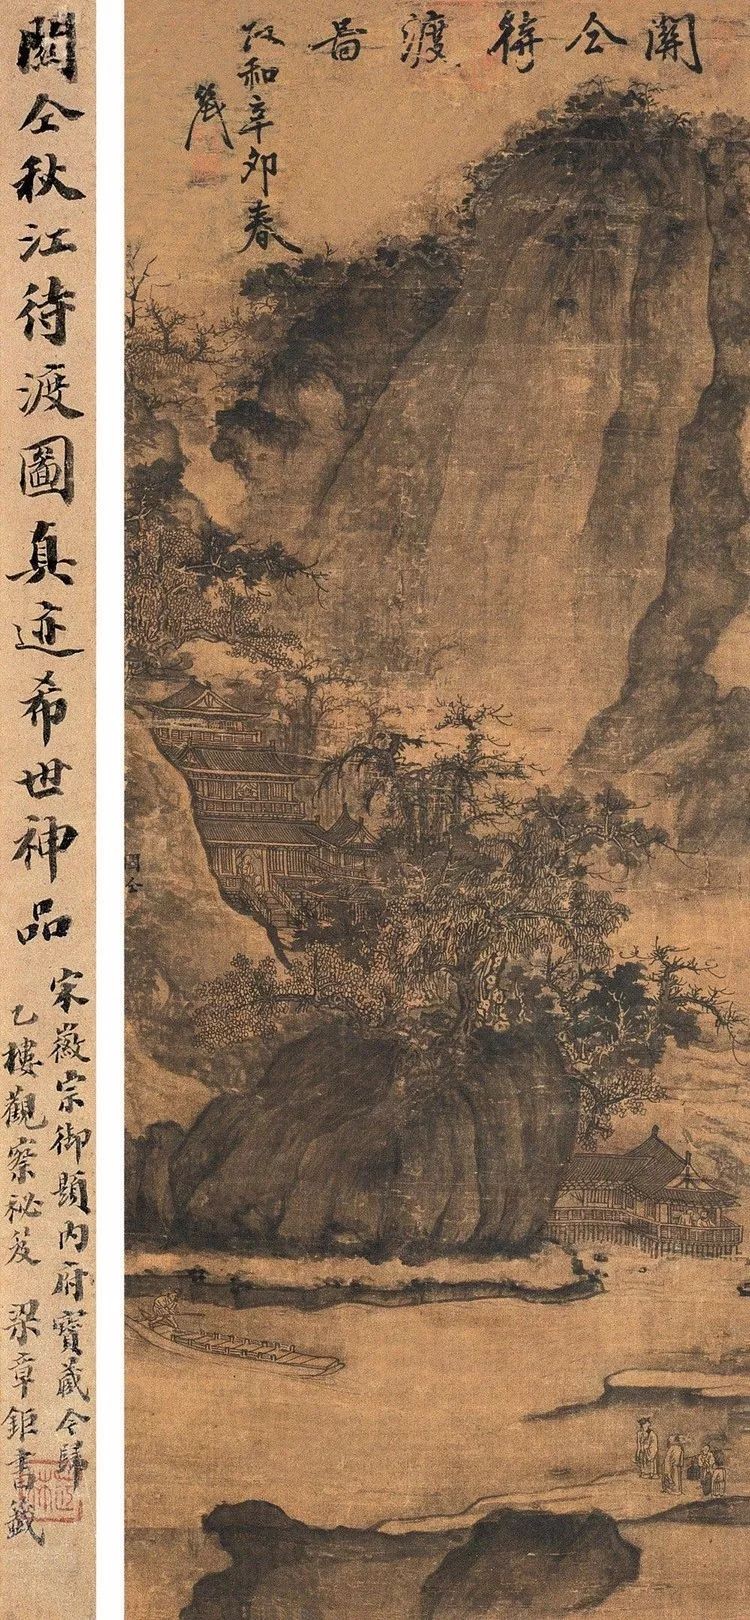 關仝秋江待渡圖真迹希世神品
宋徽宗御題內府寶藏今歸
乙樓觀察祕笈 梁章鉅書籤
關仝待渡啚
政和辛卯春
關仝